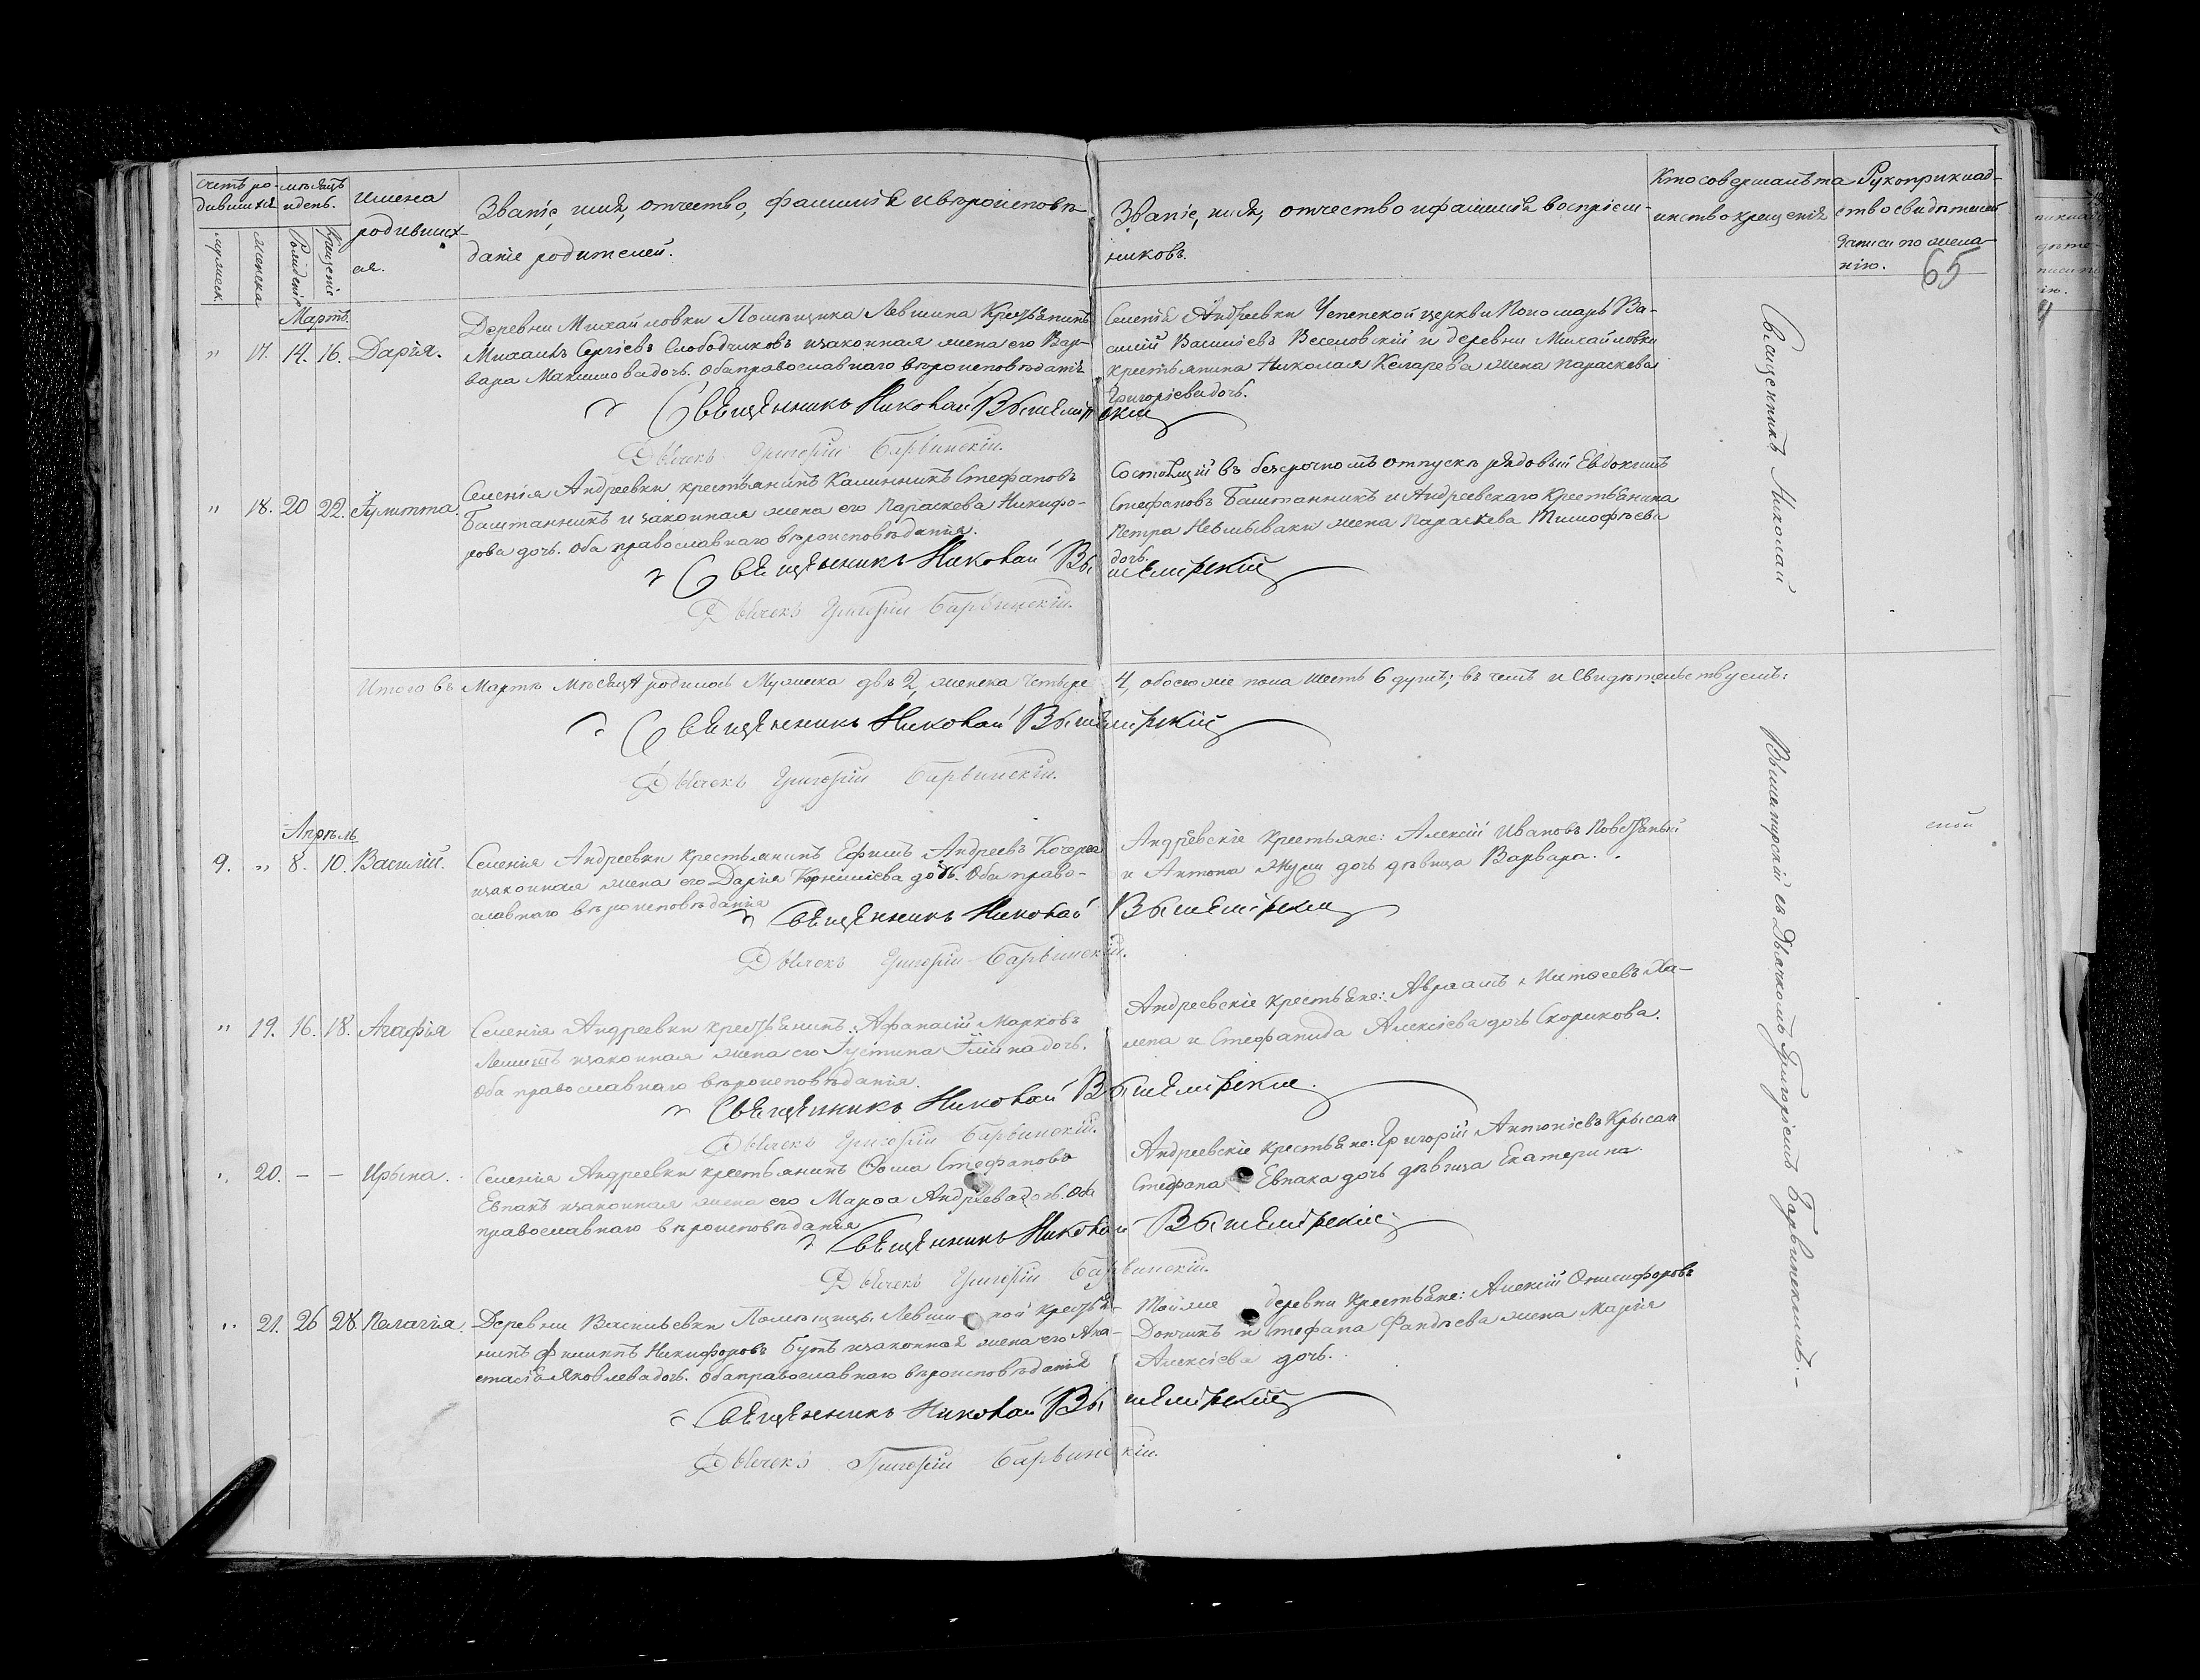 Счетъ ро-
дившихся
Мѣсяцъ
и день.
Имена
родивших-
ся.
Званіе, имя, отчество, фамилія и вѣроисповѣ-
даніе родителей.
Званіе, имя, отчество и фамилія воспріем-
никовъ.
Кто совершалъ та
инство крещенія
Рукоприклад-
ство свидѣтелей
записи по жела-
нію.
65
мужеск.
женска
Рожденія
Крещенія
Мартъ.
" 17. 14. 16. Дарія.
Деревни Михайловки Помѣщика Левшина Крестьянинъ
Михаилъ Сергіевъ Слободчиковъ и законная жена его Вар-
вара Максимова дочь. Оба православнаго вѣроисповѣданія
Священникъ Николай Вышемірскій
Дьячекъ Григорій Барвинскій.
Селенія Андреевки Успенской церкви Пономарь Ва-
силій Василіевъ Веселовскій и деревни Михайловки
крестьянина Николая Келарева жена Параскева
Григоріева дочь.
" 18. 20 22. Іулитта.
Селенія Андреевки крестьянинъ Каллиникъ Стефановъ
Баштанникъ и законная жена его Параскева Никифо-
рова дочь. Оба православнаго вѣроисповѣданія.
Священникъ Николай Вышемірскій
Дьячекъ Григорій Барвинскій.
Состоящій въ безсрочномъ отпуску рядовый Евдокимъ
Стефановъ Баштанникъ и Андреевскаго Крестьянина
Петра Невмываки жена Параскева Тимофѣева
дочь.
Итого въ Мартѣ Мѣсяцѣ родилось Мужеска двѣ 2, женска четыре 4, обоего же пола шесть 6 душъ; въ чемъ и Свидѣтельствуемъ:
Священникъ Николай Вышемірскій
Дьячекъ Григорій Барвинскій.
Апрѣль
9. " 8. 10. Василій.
Селенія Андреевки крестьянинъ Ефимъ Андреевъ Кочерга
и законная жена его Дарія Корниліева дочь. Оба право-
славнаго вѣроисповѣданія
Священникъ Николай Вышемірскій
Дьячекъ Григорій Барвинскій.
Андреевскіе Крестьяне: Алексій Ивановъ
и Антона дочь дѣвица Варвара.
" 19. 16. 18. Агафія
Селенія Андреевки крестьянинъ: Афанасій Марковъ
и законная жена его Іустина дочь.
Оба православнаго вѣроисповѣданія.
Священникъ Николай Вышемірскій.
Дьячекъ Григорій Барвинскій.
Андреевскіе крестьяне: Авраамъ Ха-
лепа и Стефанида Алексіева дочь Скорикова.
" 20. – – Ирына.
Селенія Андреевки крестьянинъ Ѳома Стефановъ
Евпакъ и законная жена его Марѳа Андреева дочь. Оба
православнаго вѣроисповѣданія
Священникъ Николай Вышемірскій
Дьячекъ Григорій Барвинскій.
Андреевскіе крестьяне: Григорій Антоніевъ Крысан
Стефана Евпака дочь дѣвица Екатерина.
" 21. 26 28. Пелагія.
Деревни Васильевки Помѣщицы Левшиной крестья-
нинъ Филиппъ Никифоровъ Бутъ и законная жена его Ана-
стасія Яковлева дочь. Оба православнаго вѣроисповѣданія
Священникъ Николай Вышемірскій
Дьячекъ Григорій Барвинскій.
Той же деревни Крестьяне: Алексій Онисифоровъ
Дончикъ и Стефана Фандѣева жена Марія
Алексіева дочь.
Священникъ Николай Вышемірскій съ Дьячкомъ Григоріемъ Барвинскимъ.–
стой